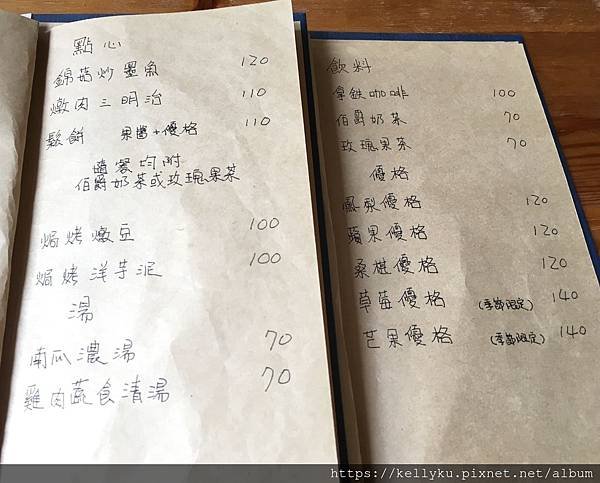 點心
錦菇炒墨魚 120
燉肉三明治 110
鬆餅 果醬+優格 110
隨餐均附
伯爵奶茶或玫瑰果茶
焗烤燉豆 100
焗烤洋芋泥 100
湯
南瓜濃湯 70
雞肉蔬食清湯 70
飲料
拿鉄咖啡 100
伯爵奶茶 70
玫瑰果茶 70
優格
鳳梨優格 120
蘋果優格 120
桑椹優格 120
草莓優格 (季節限定) 140
芒果優格 (季節限定) 140
https://kellyku.pixnet.net/album